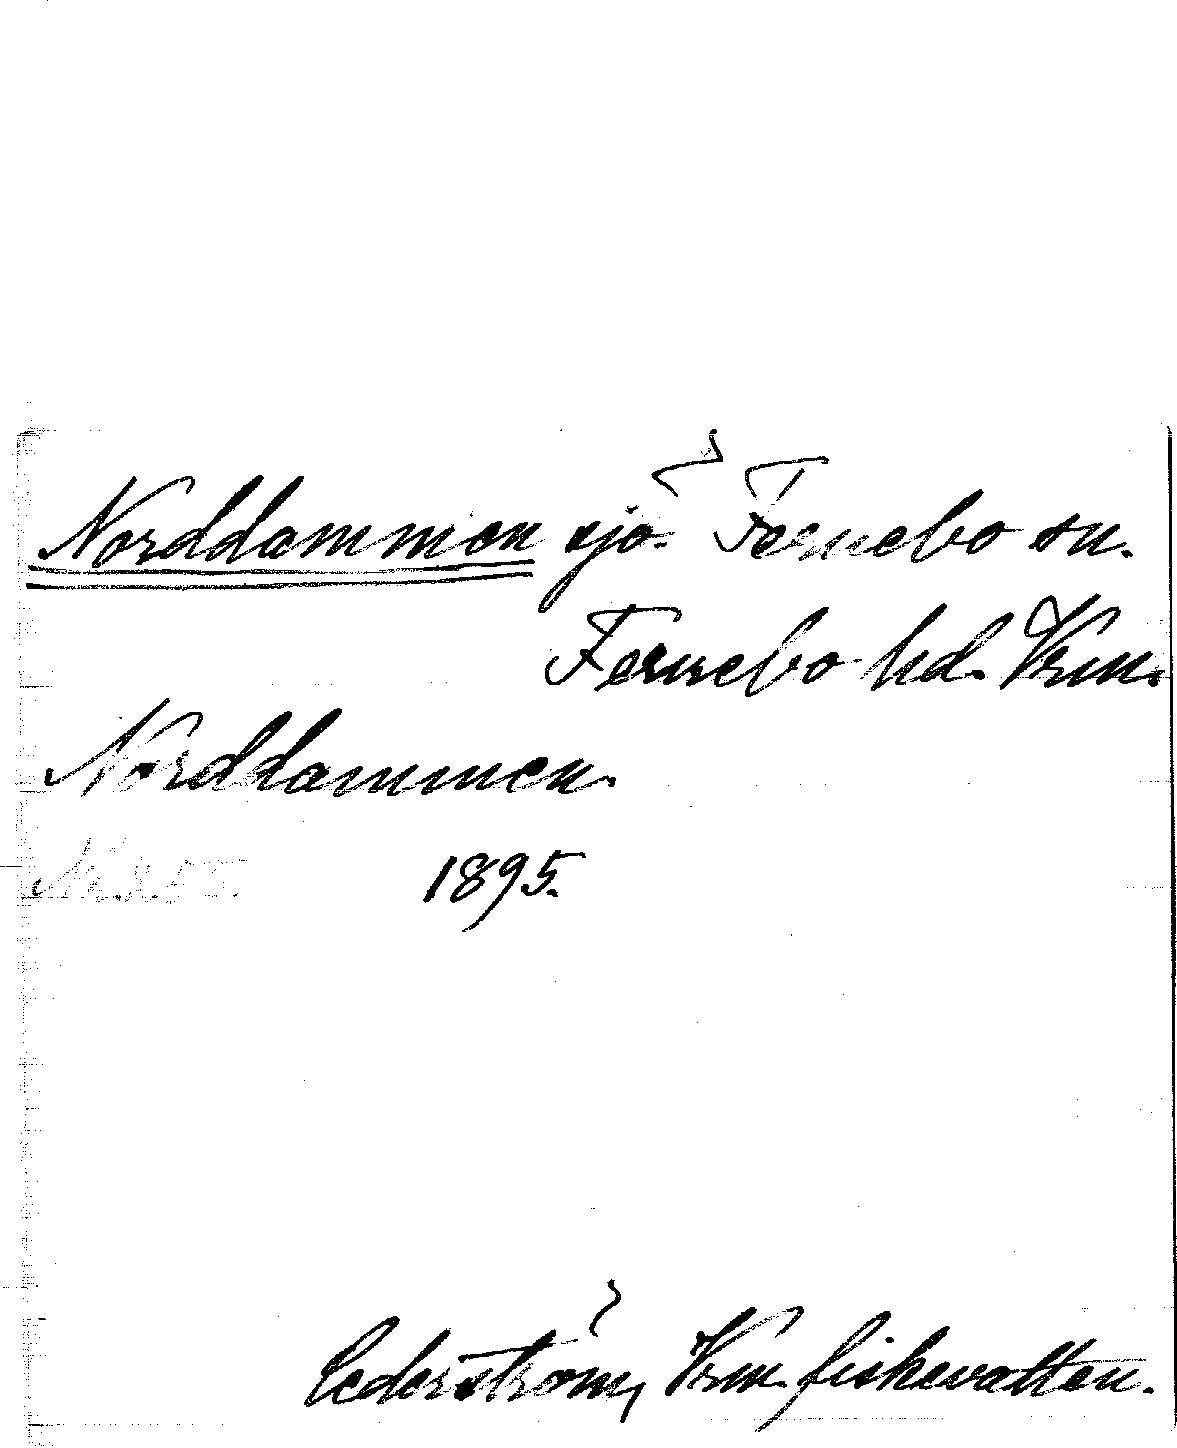 Norddammen sjö. Fernebo sn.
Fernebo hd. Vrm.
Norddammen.
1895.
Cederström, Vrm. fiskevatten.